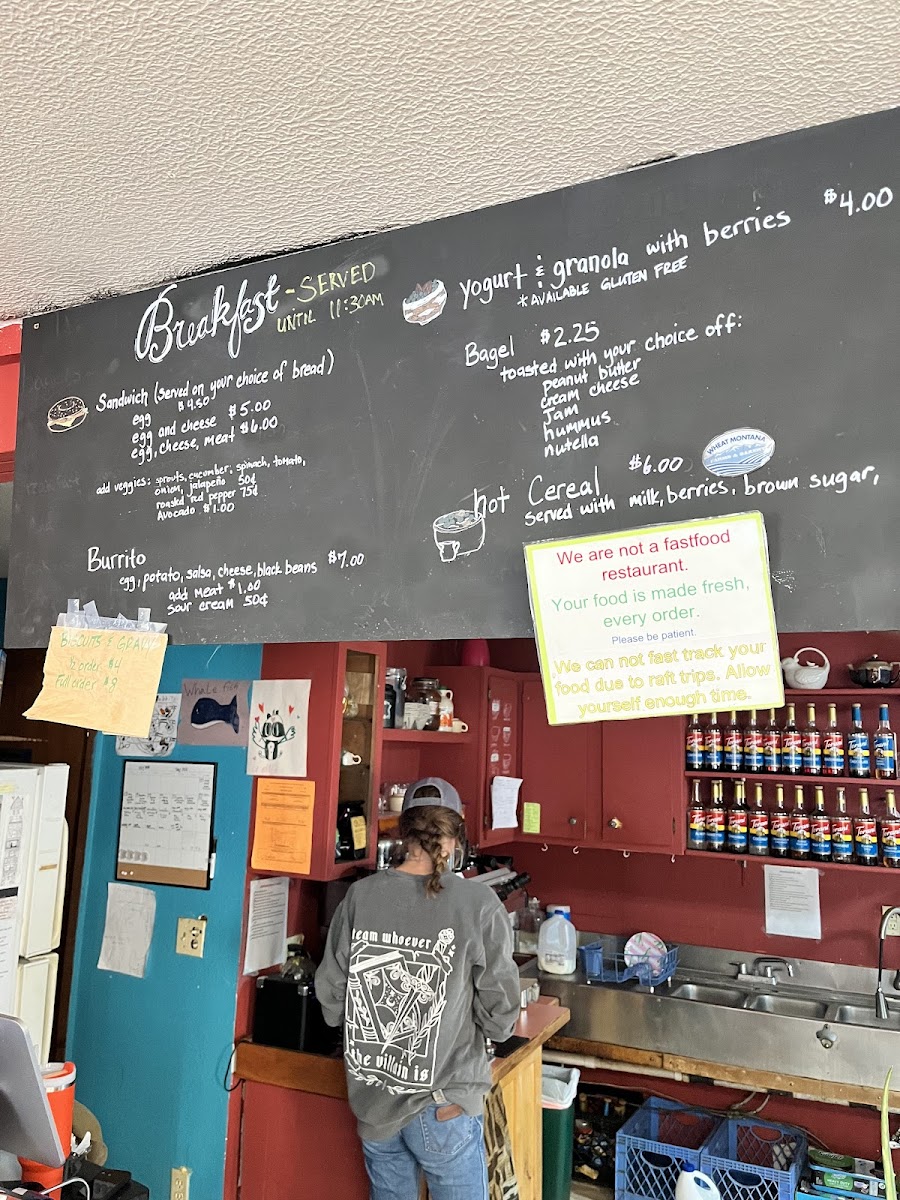 Breakfast - SERVED
UNTIL 11:30AM
Sandwich (served on your choice of bread)
egg $4.50
egg and cheese $5.00
egg, cheese, meat $6.00
add veggies: sprouts, cucumber, spinach, tomato,
onion, jalapeño 50¢
roasted red pepper 75¢
Avocado $1.00
Burrito
egg, potato, salsa, cheese, black beans $7.00
add meat $1.00
sour cream 50¢
yogurt & granola with berries $4.00
*AVAILABLE GLUTEN FREE
Bagel $2.25
toasted with your choice off:
peanut butter
cream cheese
Jam
hummus
nutella
hot Cereal $6.00
WHEAT MONTANA
FARMS & BAKERY
served with milk, berries, brown sugar,
We are not a fastfood
restaurant.
Your food is made fresh,
every order.
Please be patient.
We can not fast track your
food due to raft trips. Allow
yourself enough time.
BISCUITS & GRAVY
1/2 order $4
Full order $8
WHALE
team whoever
the villain is
Torani